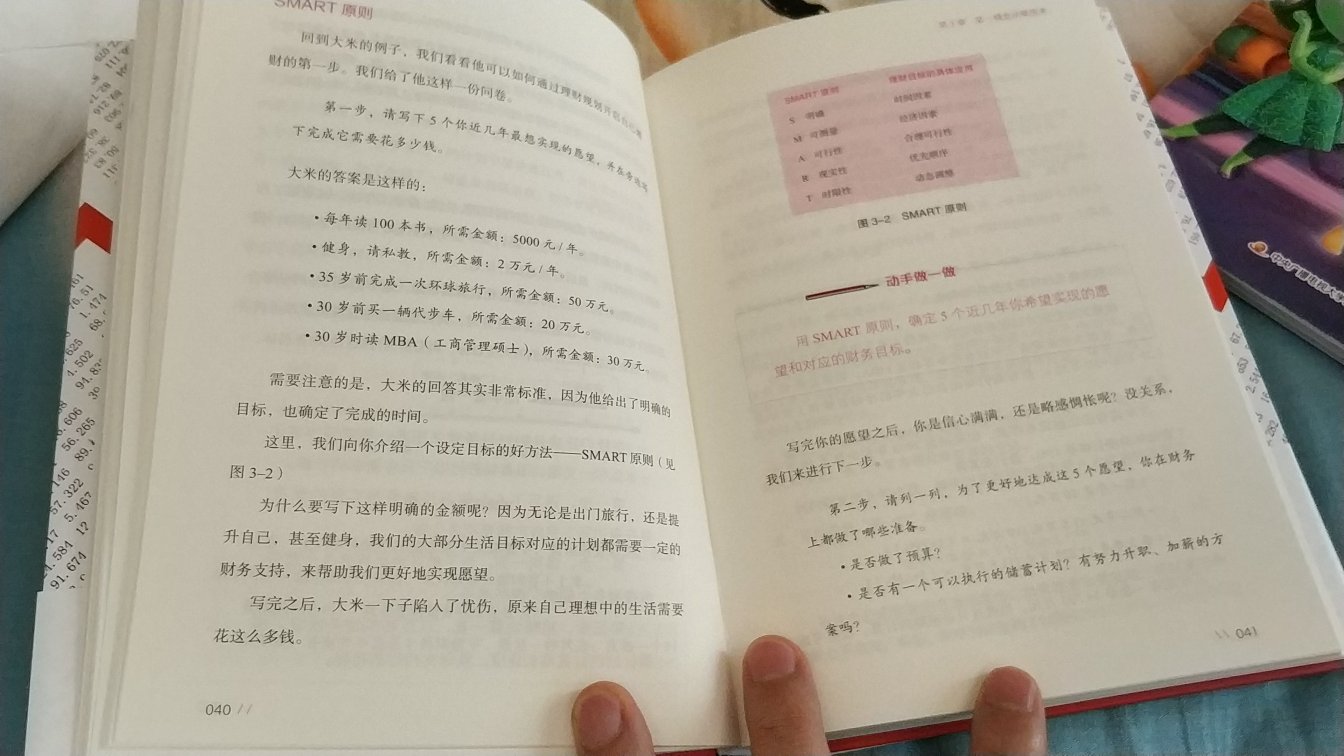 SMART 原则
回到大米的例子，我们看看他可以如何通过理财规划开启自己理
财的第一步。我们给了他这样一份问卷。
第一步，请写下 5 个你近几年最想实现的愿望，并在旁边写
下完成它需要花多少钱。
大米的答案是这样的：
• 每年读 100 本书，所需金额：5000 元 / 年。
• 健身，请私教，所需金额：2 万元 / 年。
• 35 岁前完成一次环球旅行，所需金额：50 万元。
• 30 岁前买一辆代步车，所需金额：20 万元。
• 30 岁时读 MBA（工商管理硕士），所需金额：30 万元。
需要注意的是，大米的回答其实非常标准，因为他给出了明确的
目标，也确定了完成的时间。
这里，我们向你介绍一个设定目标的好方法——SMART 原则（见
图 3-2）
为什么要写下这样明确的金额呢？因为无论是出门旅行，还是提
升自己，甚至健身，我们的大部分生活目标对应的计划都需要一定的
财务支持，来帮助我们更好地实现愿望。
写完之后，大米一下子陷入了忧伤，原来自己理想中的生活需要
花这么多钱。
040 //
SMART 原则 理财目标的具体应用
S 明确 时间因素
M 可测量 经济因素
A 可行性 合理可行性
R 现实性 优先顺序
T 时限性 动态调整
图 3-2 SMART 原则
动手做一做
用 SMART 原则，确定 5 个近几年你希望实现的愿
望和对应的财务目标。
写完你的愿望之后，你是信心满满，还是略感惆怅呢？没关系，
我们来进行下一步。
第二步，请列一列，为了更好地达成这 5 个愿望，你在财务
上都做了哪些准备。
• 是否做了预算？
• 是否有一个可以执行的储蓄计划？有努力升职、加薪的方
案吗？
\\ 041
中央广播电视大学